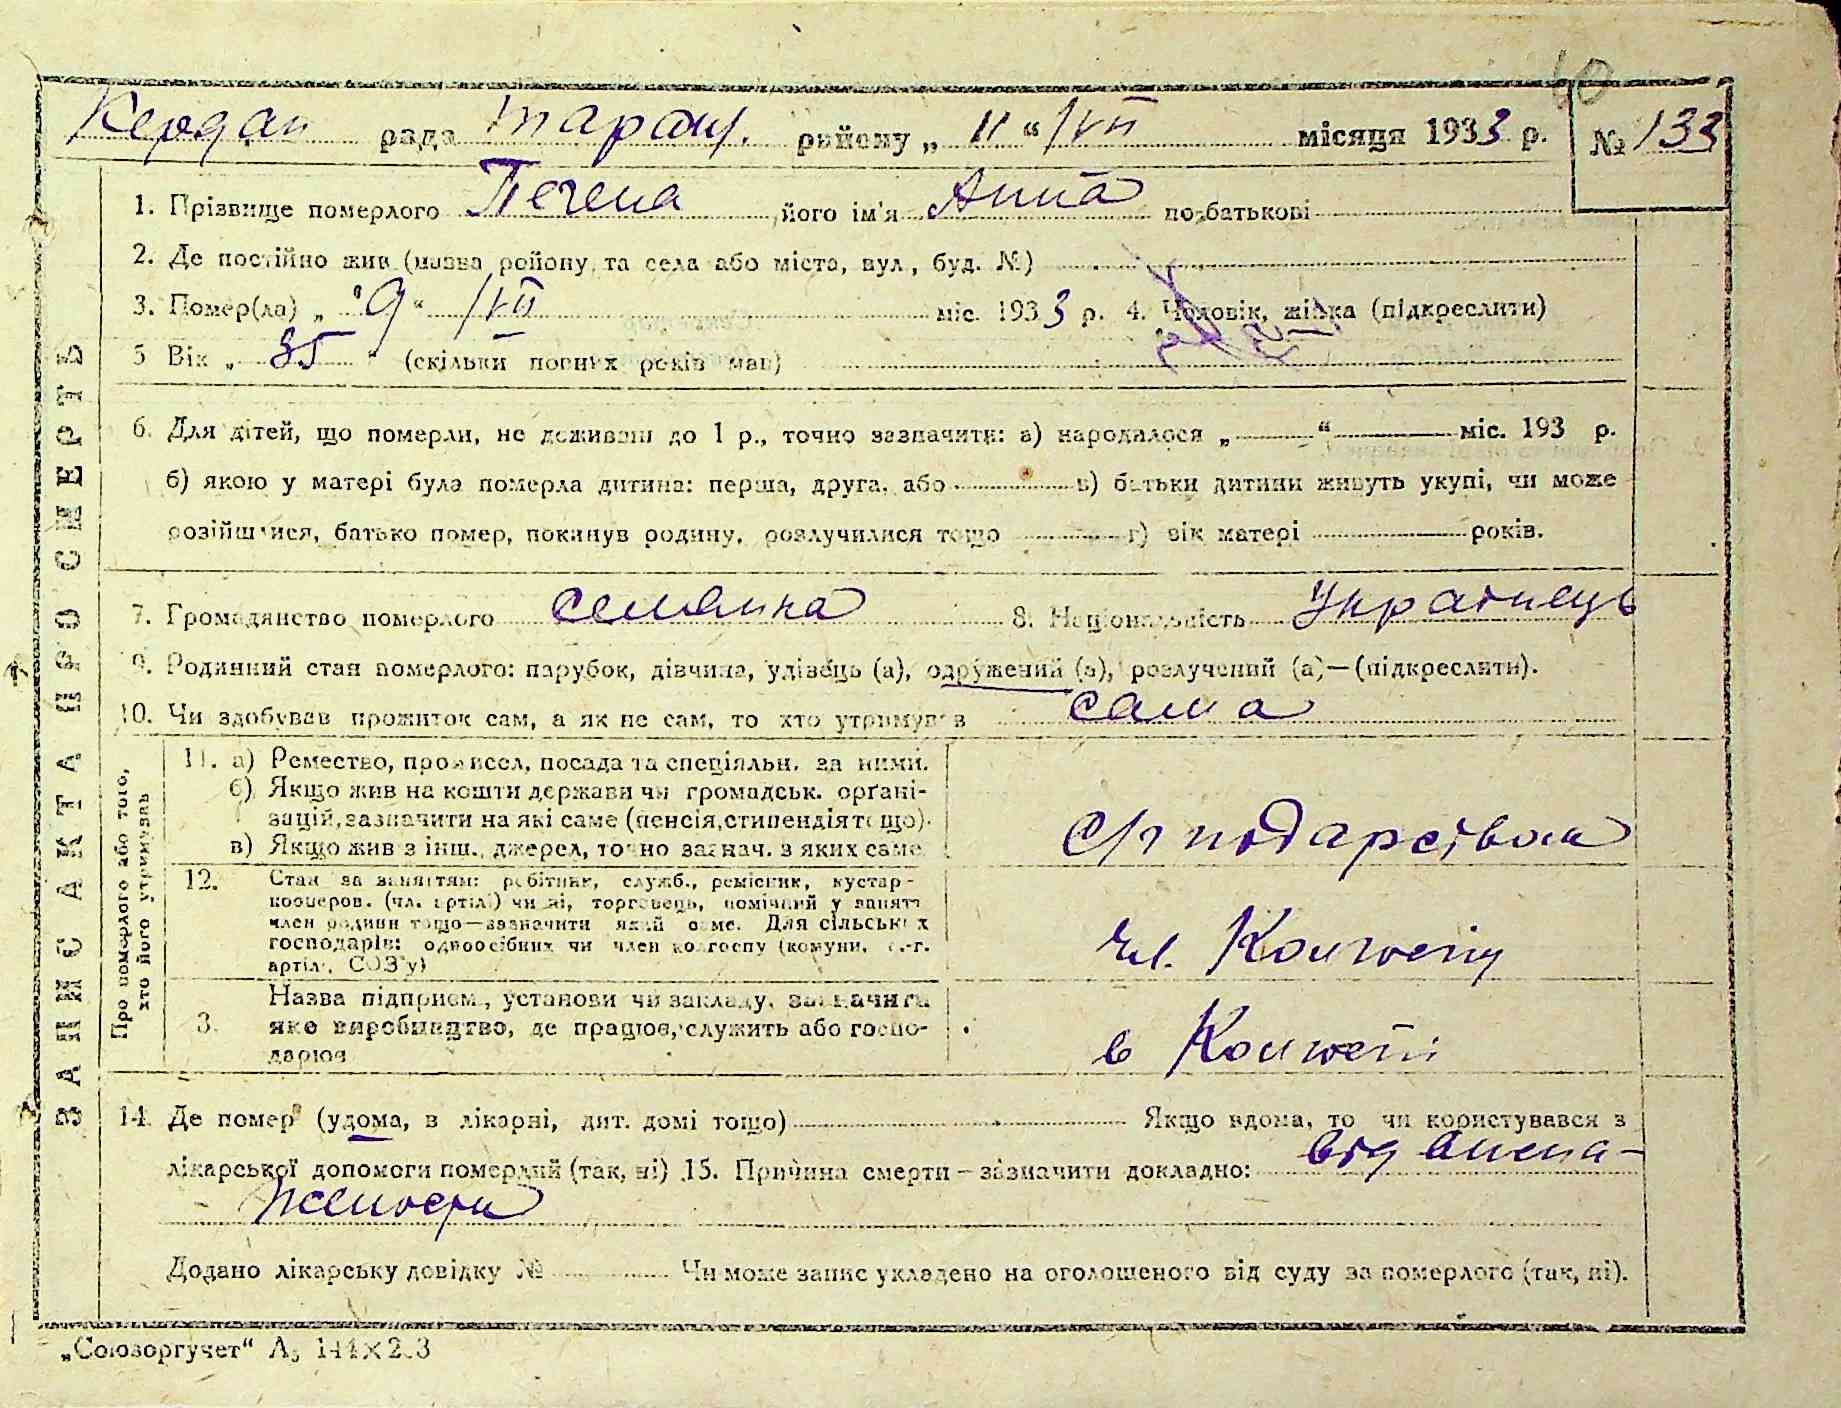 60
Кердан рада Таращ. району „ 11 “ /VII місяця 1933 р. № 133
1. Прізвище померлого Печена його ім'я Анна по-батькові
2. Де постійно жив (назва району та села або міста, вул., буд. №)
3. Помер(ла) „ 9 “ /VII міс. 1933 р. 4. Чоловік, жінка (підкреслити)
5 Вік „ 35 “ (скільки повних років мав)
6. Для дітей, що померли, не доживши до 1 р., точно зазначити: а) народилося „ “ міс. 193 р.
б) якою у матері була померла дитина: перша, друга, або в) батьки дитини живуть укупі, чи може
розійшлися, батько помер, покинув родину, розлучилися тощо г) вік матері років.
7. Громадянство померлого селянка 8. Національність Українець
9. Родинний стан померлого: парубок, дівчина, удівець (а), одружений (а), розлучений (а)—(підкреслити).
10. Чи здобував прожиток сам, а як не сам, то хто утримував сама
ЗАПИС АКТА ПРО СМЕРТЬ
Про померлого або того,
хто його утримував
11. а) Ремество, промисел, посада та спеціяльн. за ними.
б) Якщо жив на кошти держави чи громадськ. органі-
зацій, зазначити на які саме (пенсія, стипендія тощо).
в) Якщо жив з інш., джерел, точно зазнач. з яких саме
с/г
12. Стан за заняттям: робітник, служб., ремісник, кустар-
кооперов. (чл. артілі) чи ні, торговець, помічний у занятті
член родини тощо—зазначити який саме. Для сільських
господарів: одноосібник чи член колгоспу (комуни, с.-г.
артілі, СОЗ'у)
чл.
3. Назва підприєм., установи чи закладу, зазначити
яке виробництво, де працює, служить або госпо-
дарює
в
14. Де помер (удома, в лікарні, дит. домі тощо) Якщо вдома, то чи користувався з
лікарської допомоги померлий (так, ні) 15. Причина смерти – зазначити докладно: від виена-
жености
Додано лікарську довідку № Чи може запис укладено на оголошеного від суду за померлого (так, ні).
„Союзоргучет“ А₅ 144×203